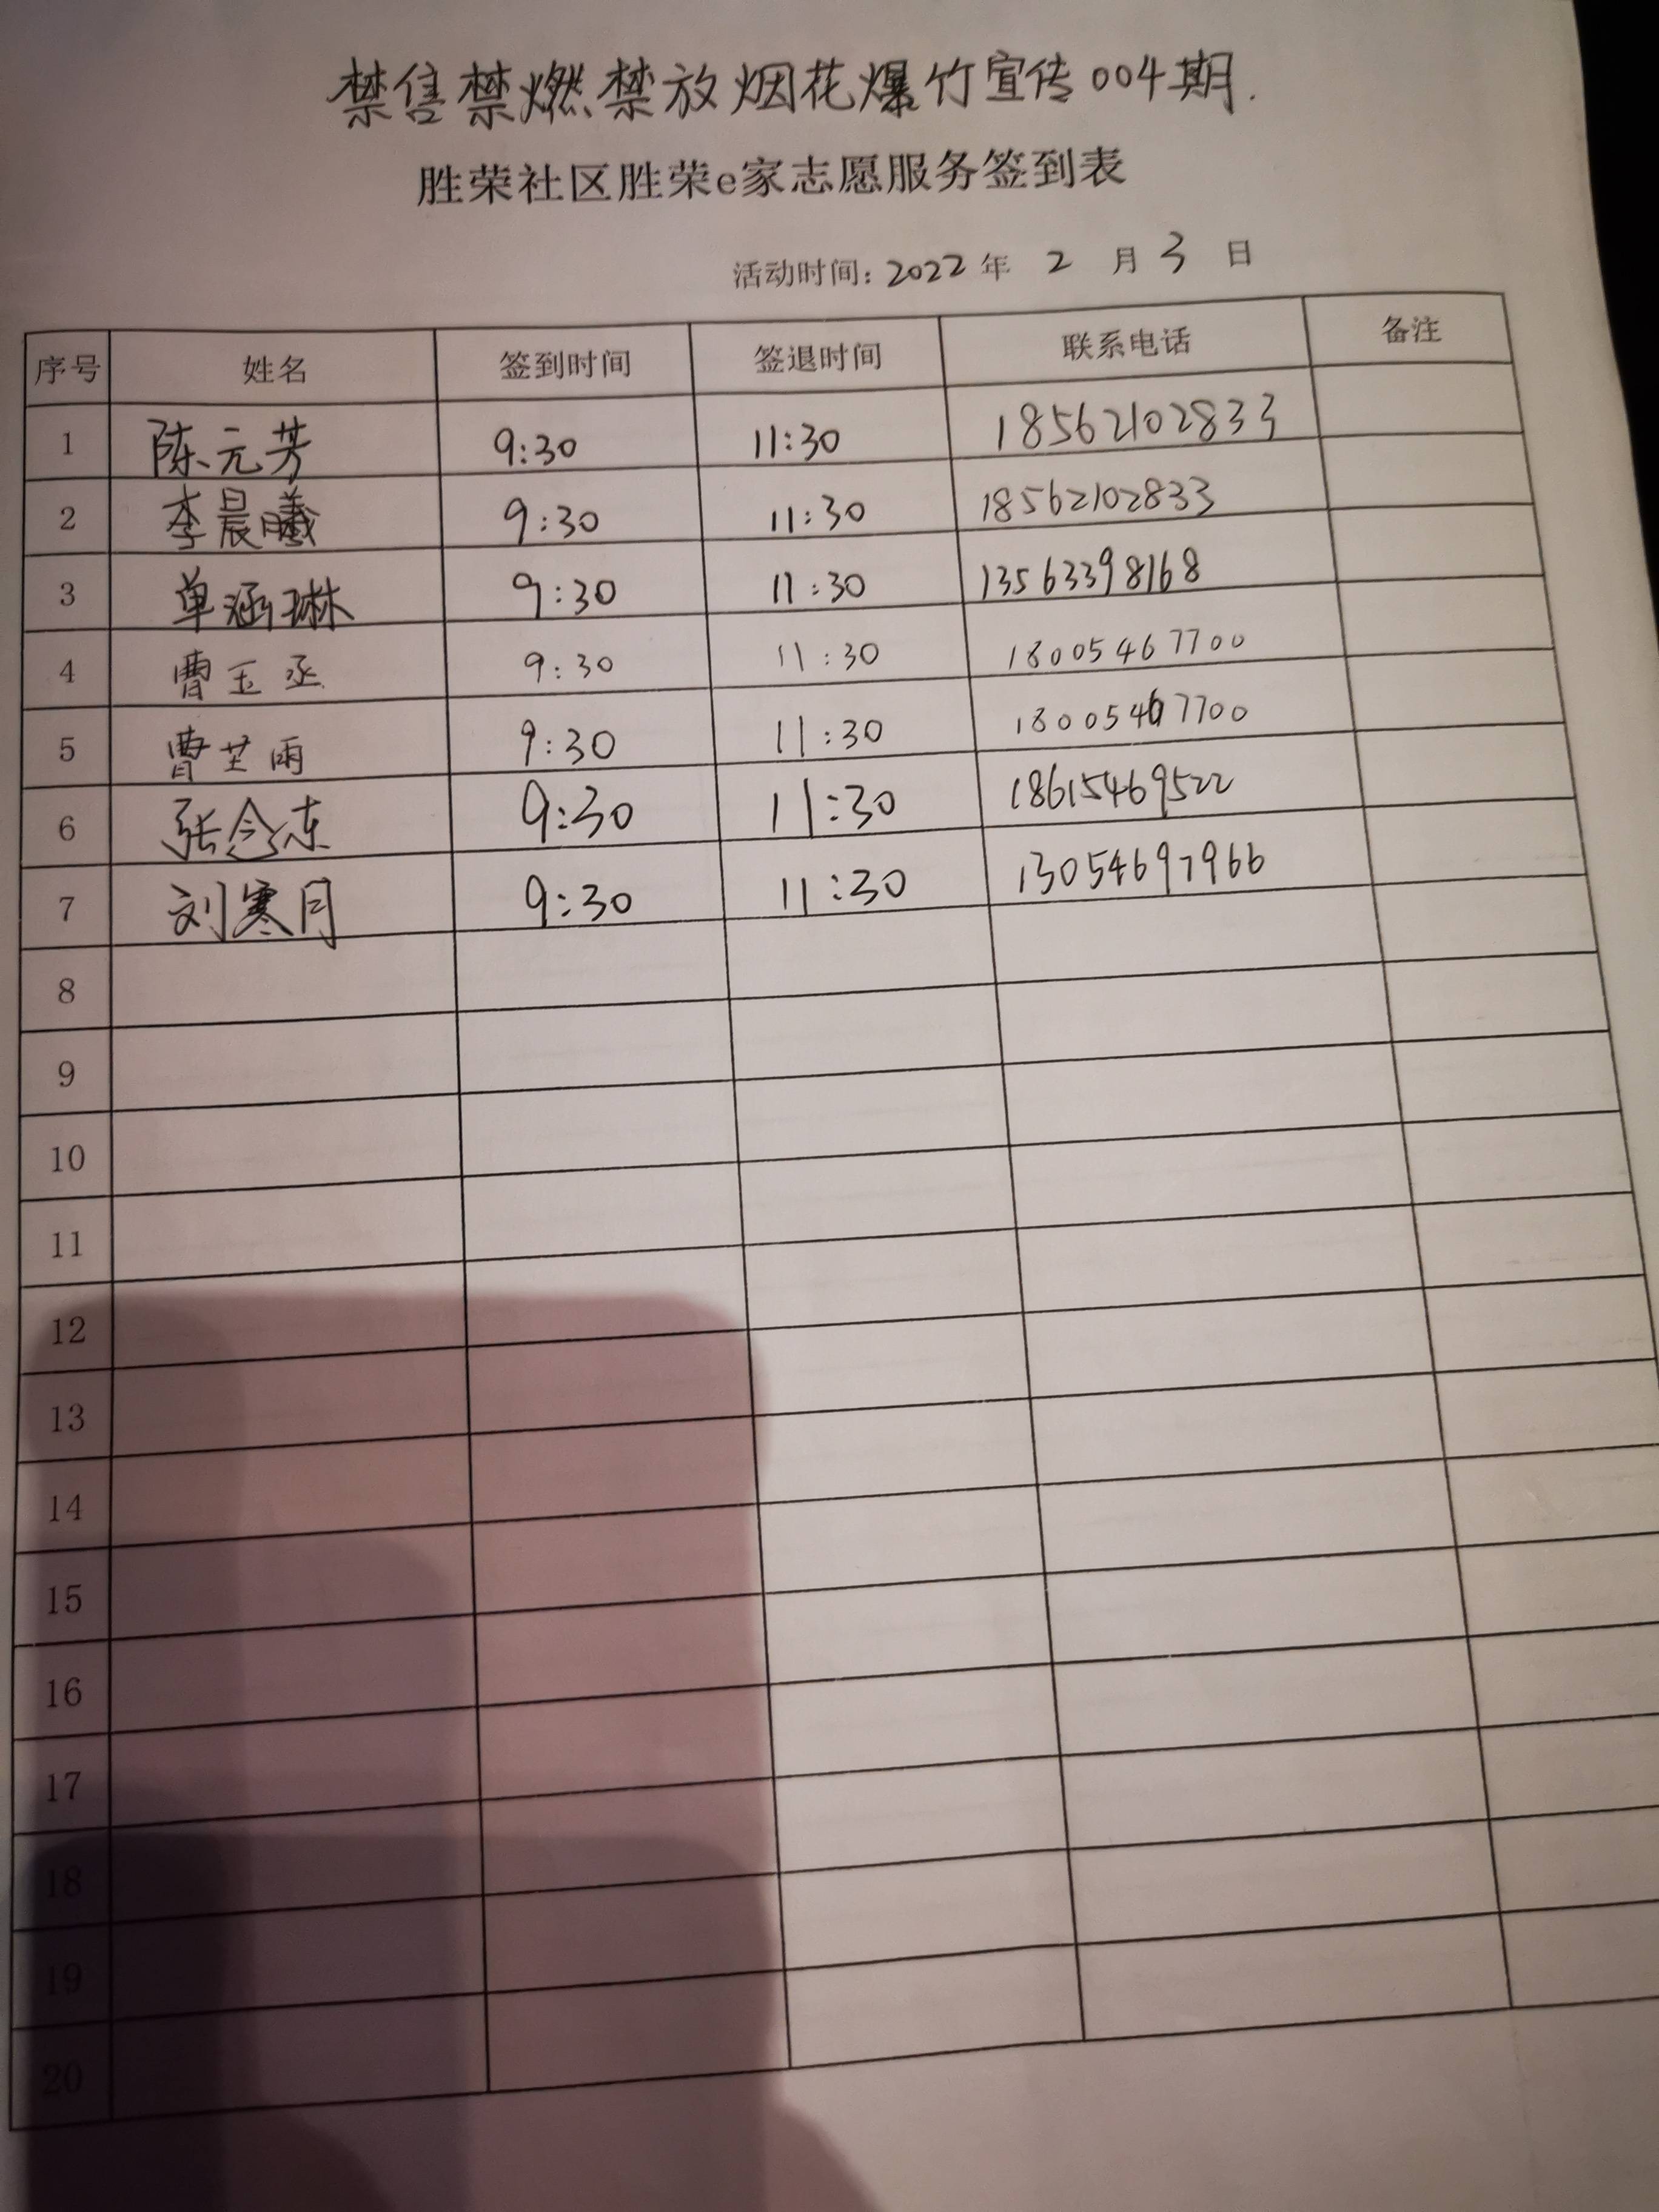 禁售禁燃禁放烟花爆竹宣传004期.
胜荣社区胜荣e家志愿服务签到表
活动时间: 2022 年 2 月 3 日
序号 姓名 签到时间 签退时间 联系电话 备注
1 陈元芳 9:30 11:30 18562102833
2 李晨曦 9:30 11:30 18562102833
3 单涵琳 9:30 11:30 13563398168
4 曹玉丞 9:30 11:30 18005467700
5 曹芷雨 9:30 11:30 18005467700
6 张念东 9:30 11:30 18615469522
7 刘寒月 9:30 11:30 13054697966
8
9
10
11
12
13
14
15
16
17
18
19
20